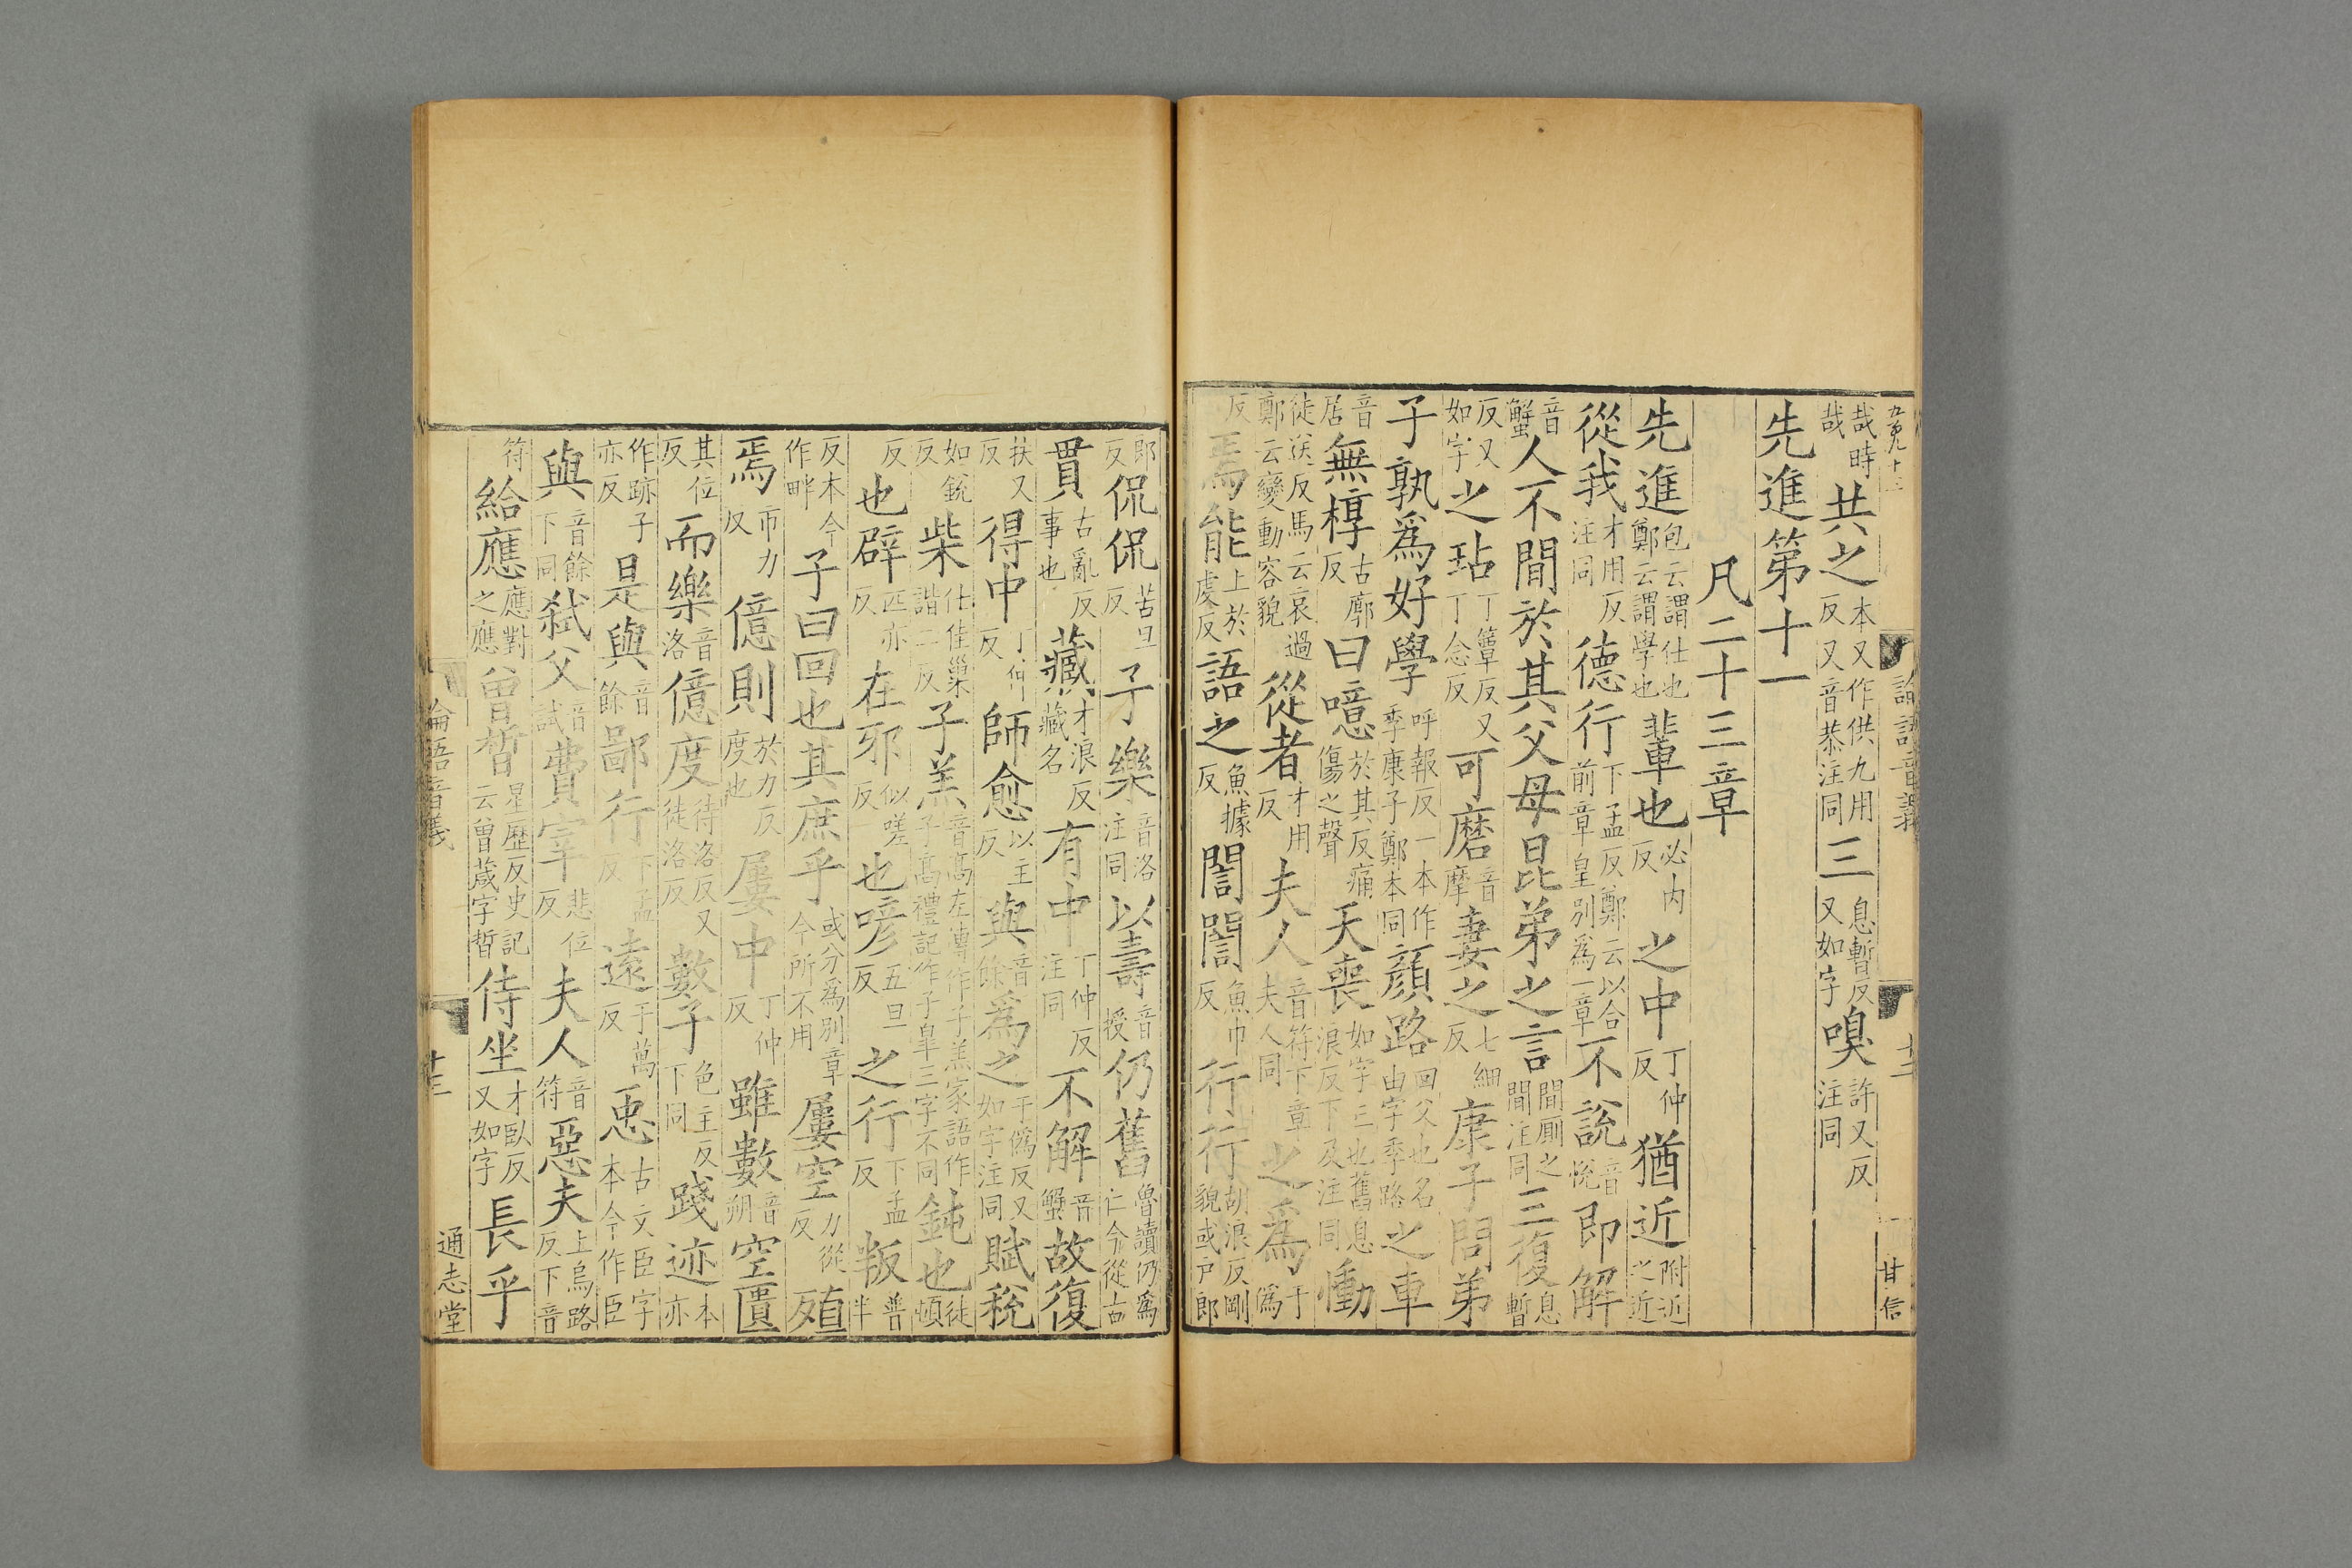 哉時哉共之本又作供九用反又音恭注同三息暫反又如字嗅許又反注同
先進第十一
凡二十三章
先進包云謂仕也鄭云謂學也輩也必內反之中丁仲反猶近附近之近
從我才用反注同德行下孟反鄭云以合前章皇別爲一章不說音悅即解
音蟹人不間於其父母昆弟之言間厠之間注同三復息暫
反又如字之玷丁簟反又丁念反可磨音摩妻之七細反康子問弟
子孰爲好學呼報反一本作季康子鄭本同顏路回父也名由字季路之車
音居無椁古廓反曰噫於其反痛傷之聲天喪如字亡也舊息浪反下及注同慟
徒送反馬云哀過鄭云變動容貌從者才用反夫人音符下章夫人同之爲于僞
反焉能上於虔反語之魚據反誾誾魚巾反行行胡浪反剛貌或戶郎
郎反侃侃苦旦反子樂音洛注同以壽音授仍舊魯讀仍爲仁今從古
貫古亂反事也藏才浪反藏名有中丁仲反注同不解音蟹故復
扶又反得中丁仲反師愈以主反與音餘爲之于僞反又如字注同賦稅
如銳反柴仕佳巢諧二反子羔音高左傳作子羔家語作子高禮記作子臯三字不同鈍也徒頓
反也辟匹亦反在邪似嗟反也喭五旦反之行下孟反叛普半
反本今作畔子曰回也其庶乎或分爲別章今所不用屢空力從反殖
焉市力反億則於力反度也屢中丁仲反雖數音朔空匱
其位反而樂音洛億度待洛反又徒洛反數子色主反下同踐迹本亦
作跡子亦反是與音餘鄙行下孟反遠于萬反𢘑古文臣字本今作臣
與音餘下同弑父音試費宰悲位反夫人音符惡夫上烏路反下音
符給應應對之應曾晳星歷反史記云曾蒧字晳侍坐才臥反又如字長乎
論語音義
十二
甘信
論語音義
十三
通志堂